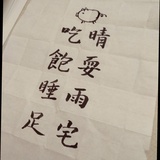 晴耍雨宅
吃飽睡足